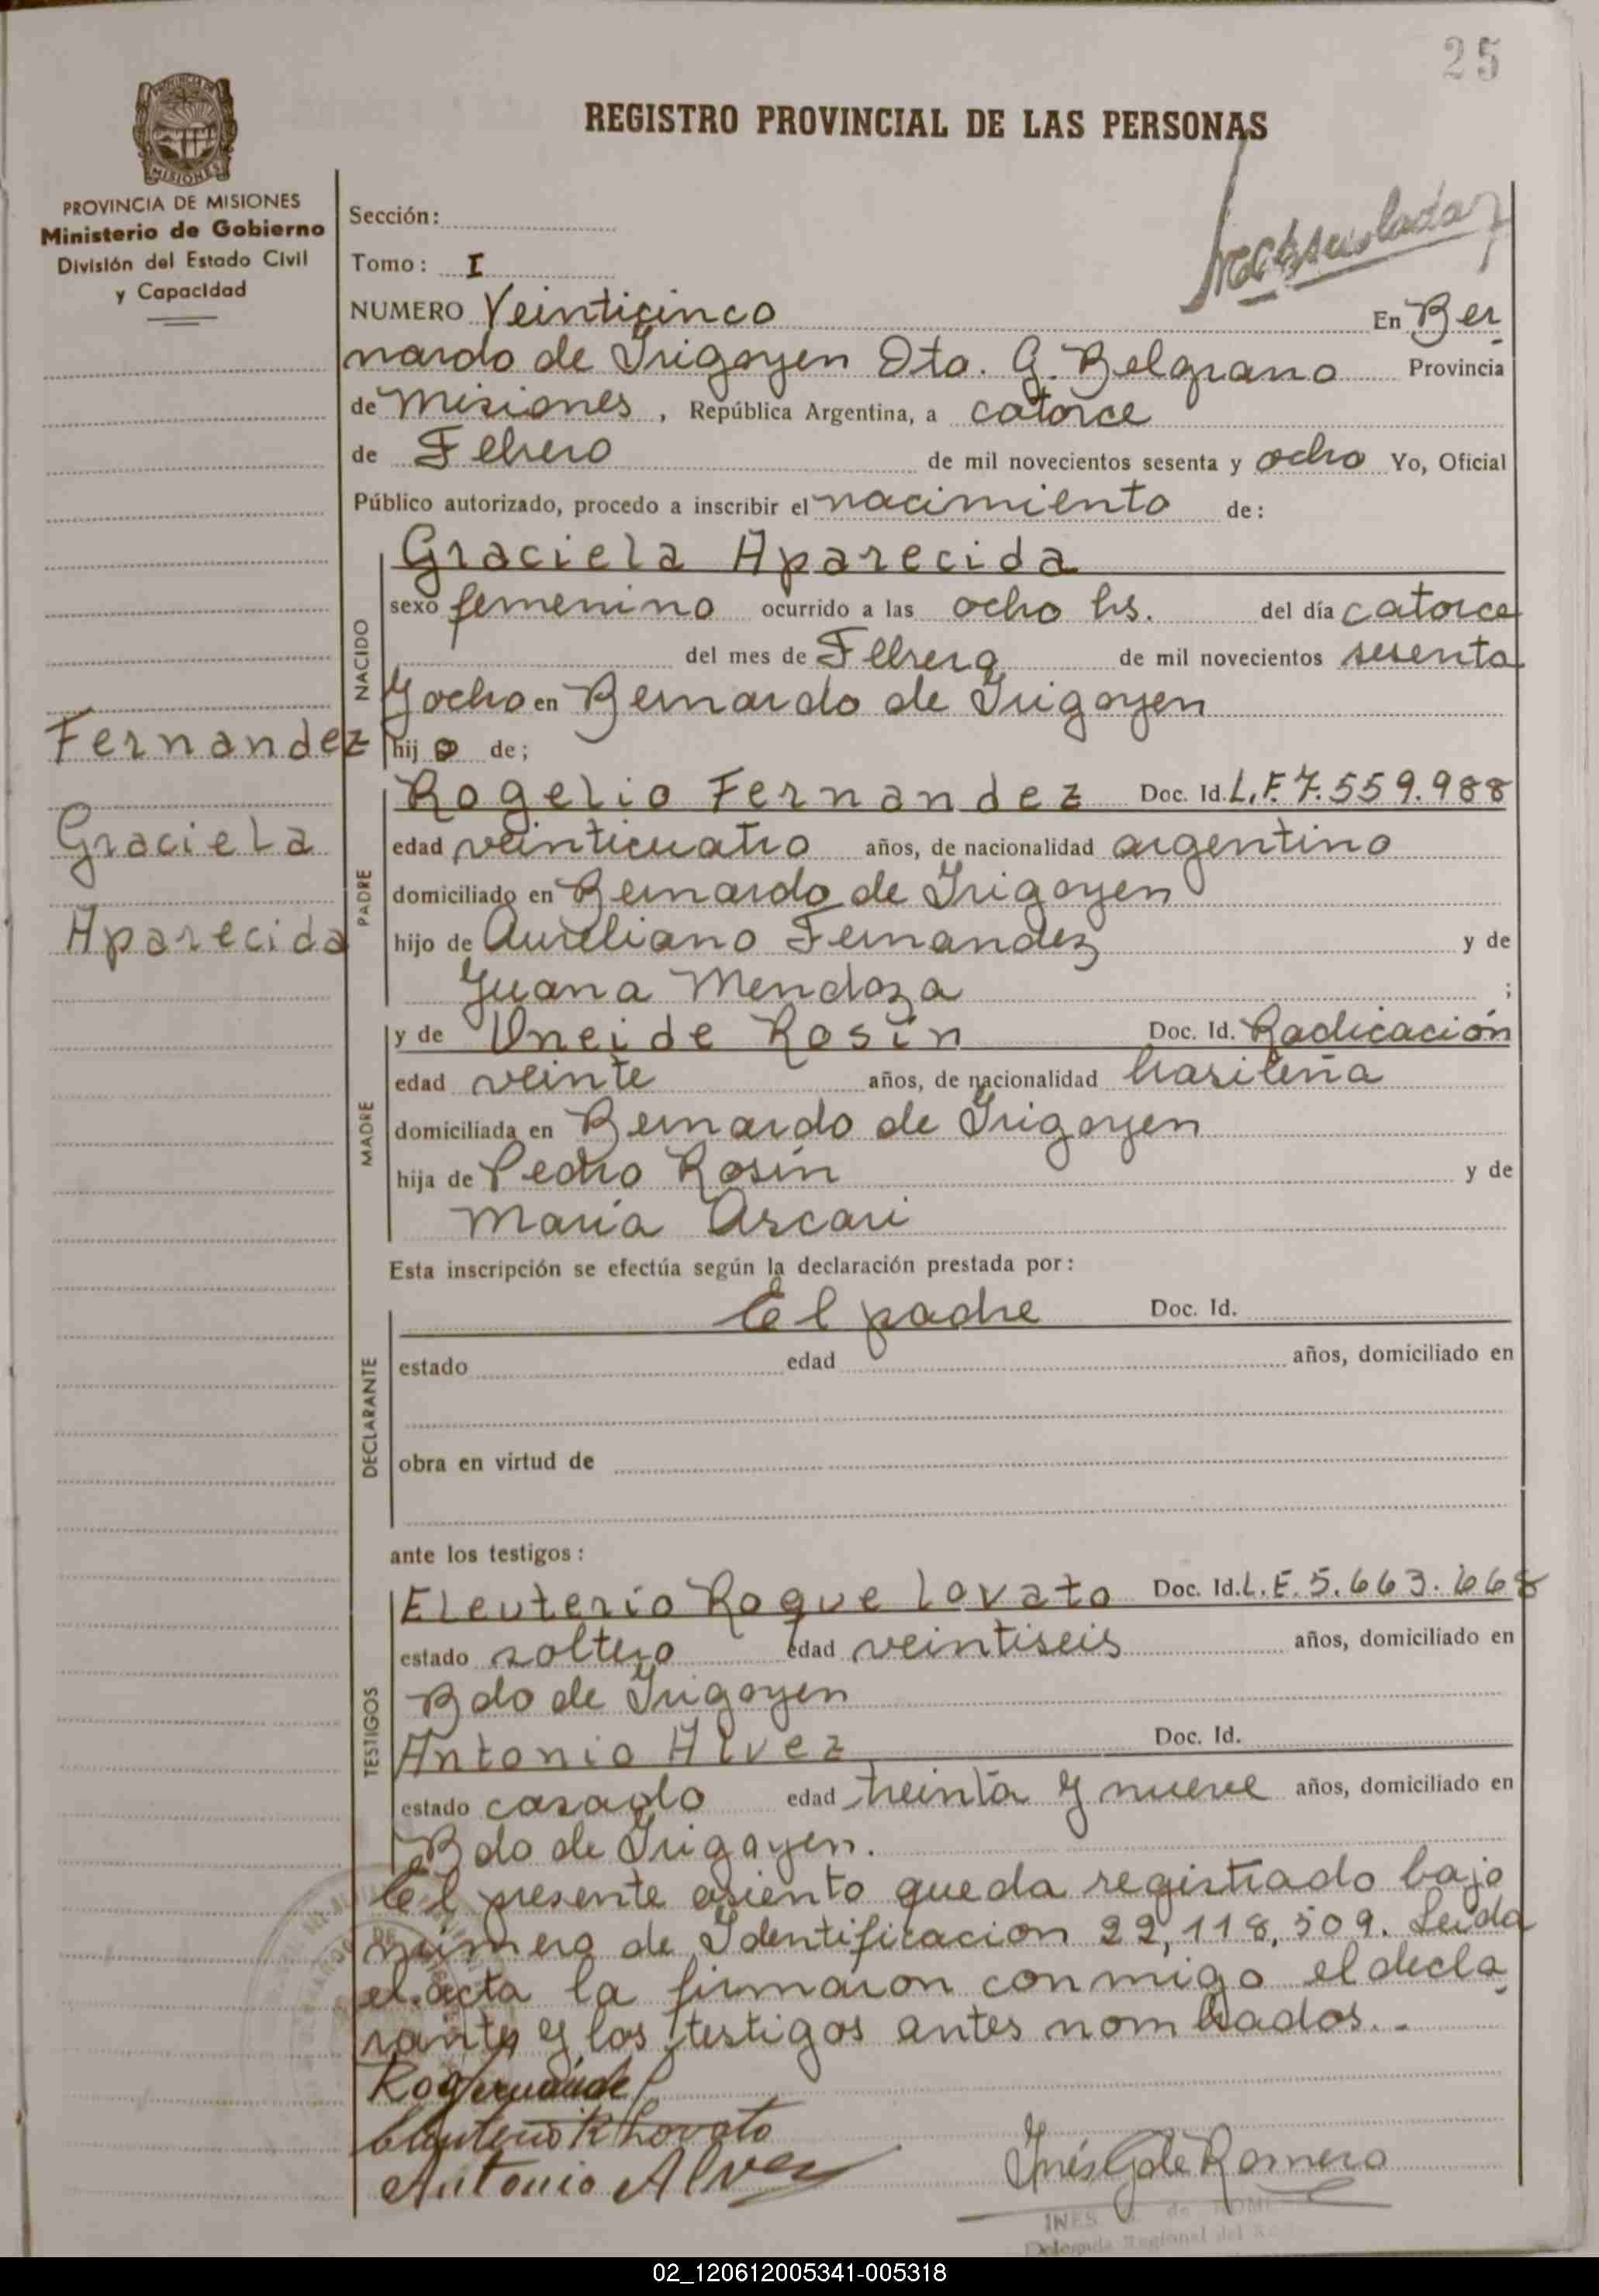 25
PROVINCIA DE
MISIONES
REGISTRO PROVINCIAL DE LAS PERSONAS
PROVINCIA DE MISIONES
Ministerio de Gobierno
División del Estado Civil
y Capacidad
Sección:
Tomo: I
NUMERO Veinticinco En Ber
nardo de Irigoyen Dto. G. Belgrano Provincia
de Misiones, República Argentina, a catorce
de Febrero de mil novecientos sesenta y ocho Yo, Oficial
Público autorizado, procedo a inscribir el nacimiento de:
NACIDO
Graciela Aparecida
sexo femenino ocurrido a las ocho hs. del día catorce
del mes de Febrero de mil novecientos sesenta
y ocho en Bernardo de Irigoyen
Fernandez
hij o de;
PADRE
Rogelio Fernandez Doc. Id. L.E. 7.559.988
Graciela
edad veinticuatro años, de nacionalidad argentino
domiciliado en Bernardo de Irigoyen
Aparecida
hijo de Aureliano Fernandez y de
Juana Mendoza ;
MADRE
y de Uneide Rosin Doc. Id. Radicación
edad veinte años, de nacionalidad brasileña
domiciliada en Bernardo de Irigoyen
hija de Pedro Rosin y de
Maria Ascari
Esta inscripción se efectúa según la declaración prestada por:
DECLARANTE
El padre Doc. Id.
estado edad años, domiciliado en
obra en virtud de
ante los testigos:
TESTIGOS
Eleuterio Roque Lovato Doc. Id. L.E. 5.663.668
estado soltero edad veintiseis años, domiciliado en
Bdo de Irigoyen
Antonio Alvez Doc. Id.
estado casado edad treinta y nueve años, domiciliado en
Bdo de Irigoyen.
El presente asiento queda registrado bajo
número de Identificacion 22,118,509. Leida
el acta la firmaron conmigo el decla
rante y los testigos antes nombrados.-
Eleuterio R Lovato
Antonio Alvez
Inés G de Romero
INES de ROME
Delegada Regional del
02_120612005341-005318